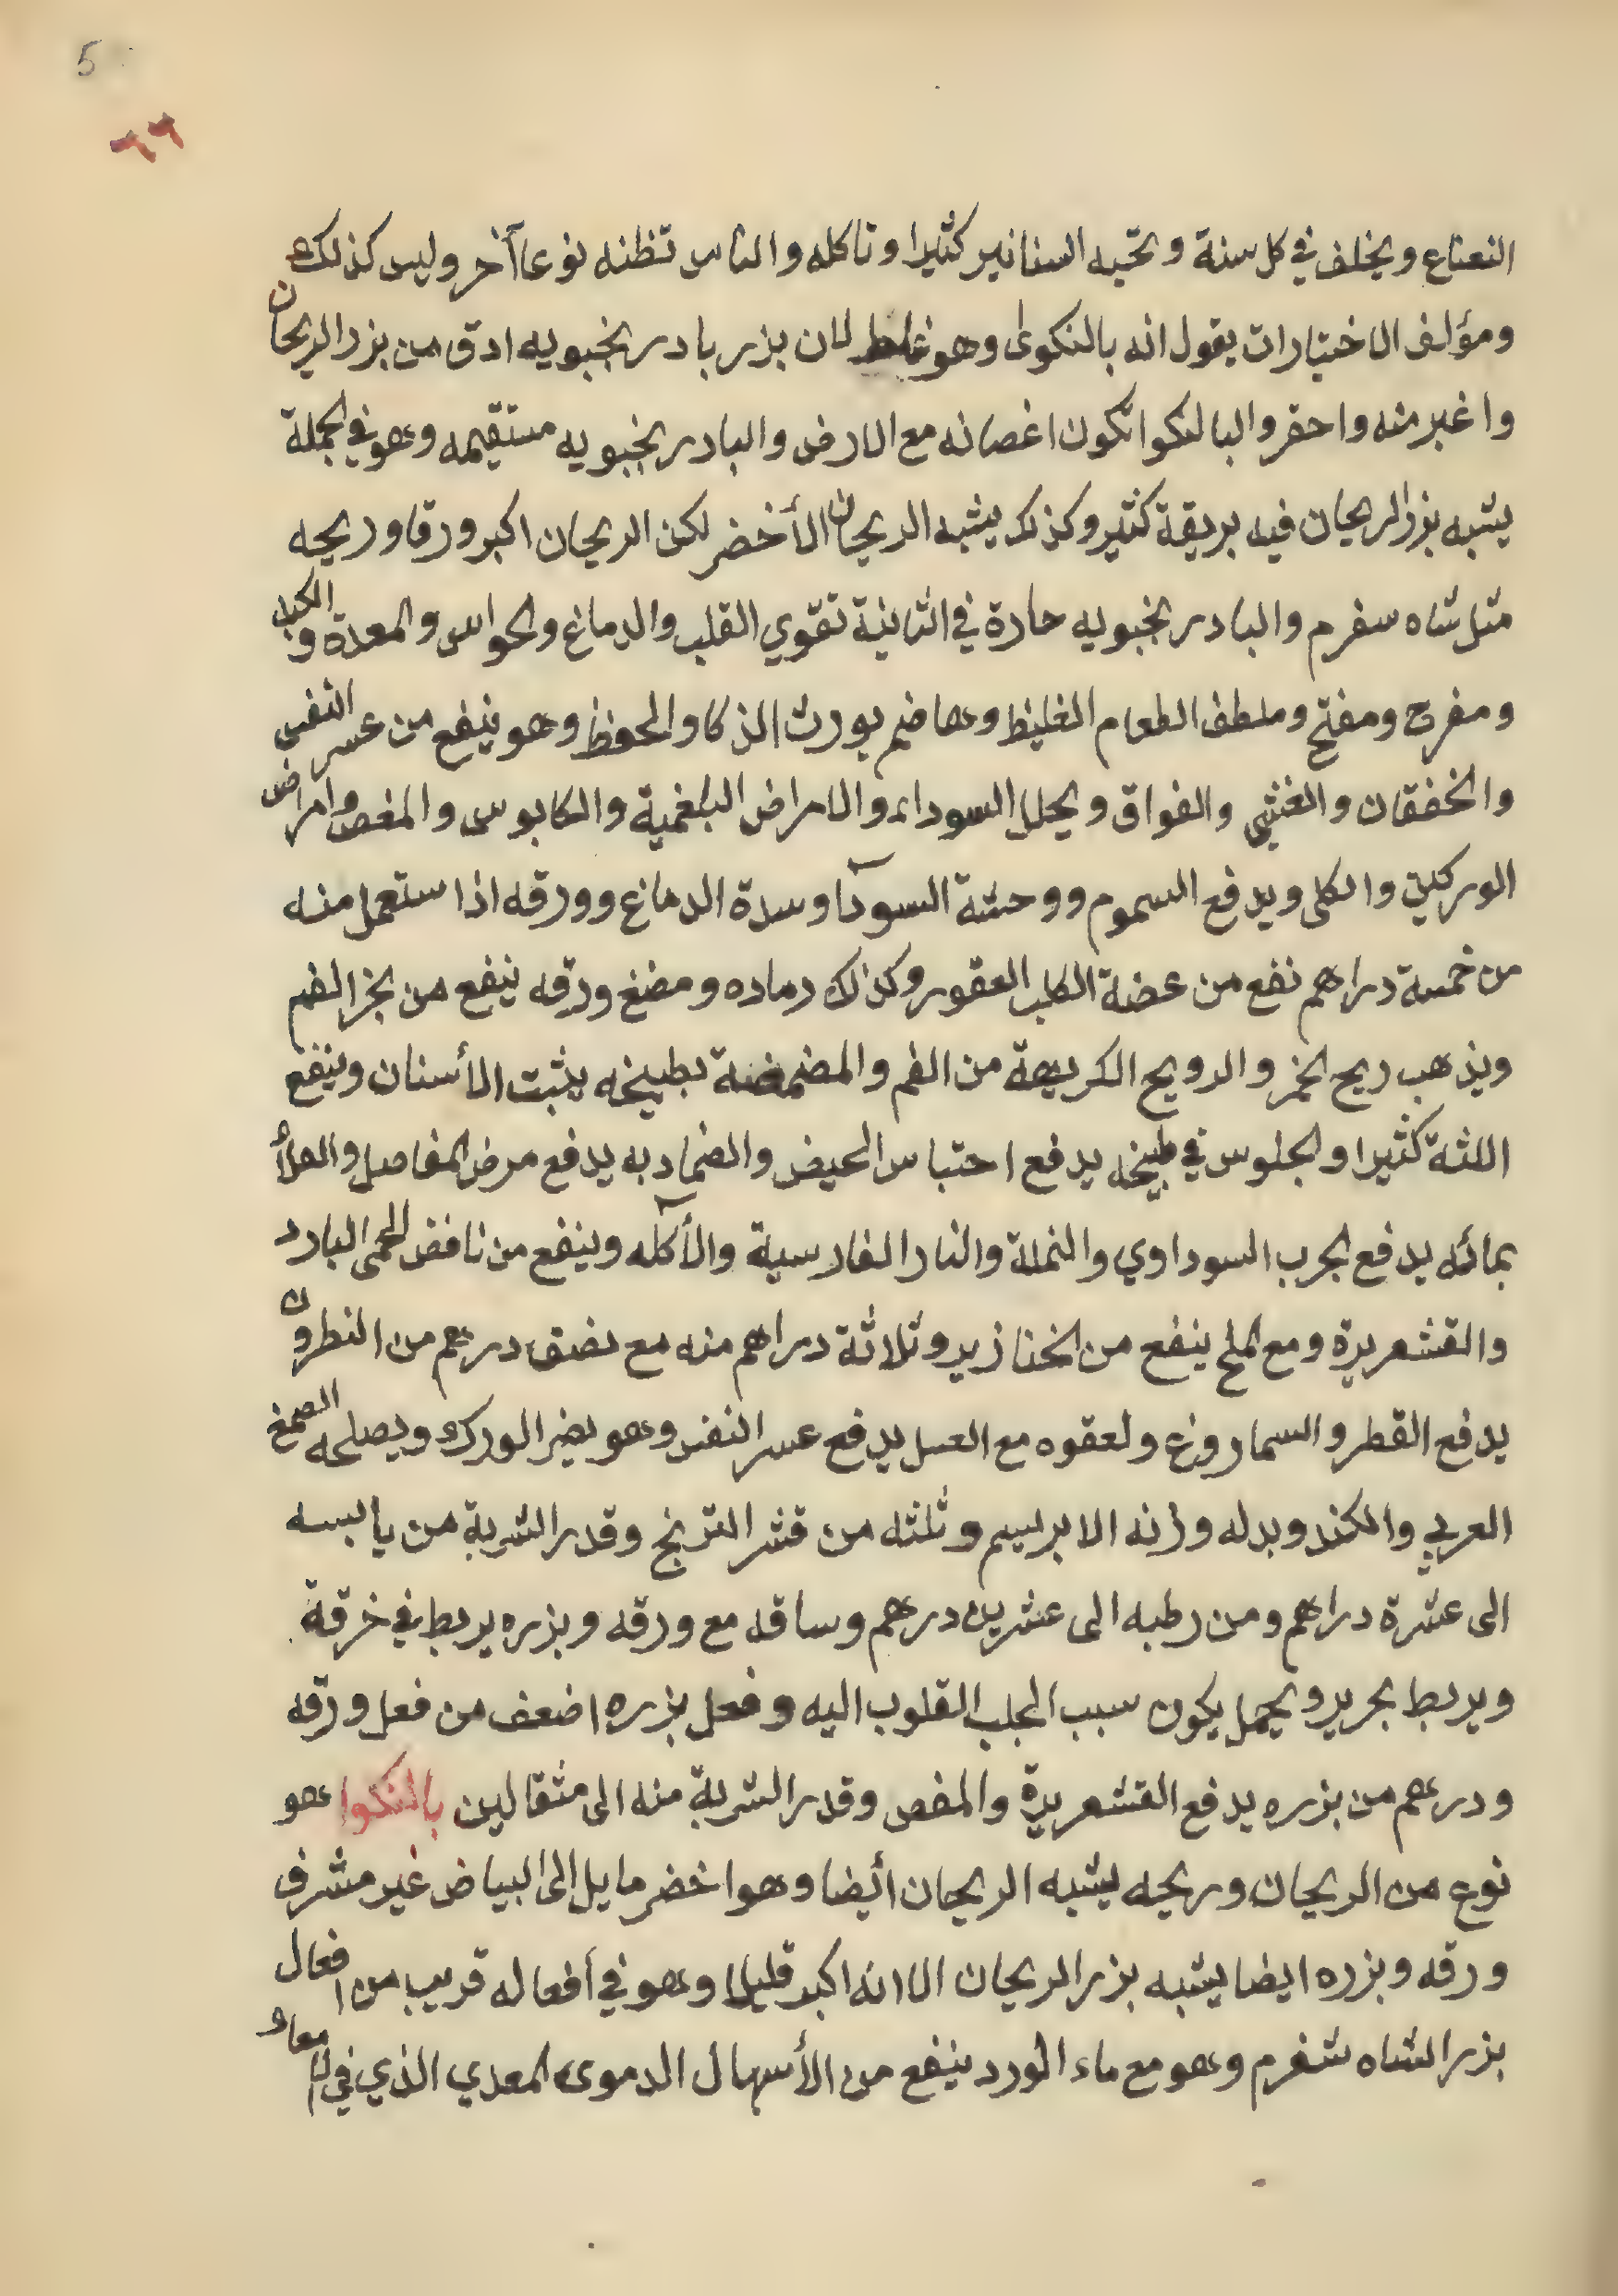 5
٦٦
النعناع ويخلف في كل سنة وتحبه السنانير كثيرا وتاكله والناس تظنه نوعا آخر وليس كذلك
ومؤلف الاختيارات يقول انه بالنكوى وهو غلط لان بزر بادرنجبويه ادق من بزر الريحان
واغبر منه واحقر والبالنكوا تكون اغصانه مع الارض والبادرنجبويه مستقيمه وهو في الجملة
يشبه بزر الريحان فيه بريقة كثير وكذلك يشبه الريحان الأخضر لكن الريحان اكبر ورقا وريحه
مثل شاه سفرم والبادرنجبويه حارة في الثانية تقوي القلب والدماغ والحواس والمعدة والكبد
ومفرح ومفتح وملطف الطعام الغليظ وهاضم يورث الذكا والحفظ وهو ينفع من عسر النفس
والخفقان والغثي والفواق ويحلل السوداء والامراض البلغمية والكابوس والمغص وامراض
الوركين والكلى ويدفع السموم ووحشة السودآ وسدة الدماغ وورقه اذا ستعمل منه
من خمسة دراهم نفع من عضة الكلب العقور وكذلك رماده ومضغ ورقه ينفع من بخر الفم
ويذهب ريح الخمر والرويح الكريهة من الفم والمضمضة بطبيخه يثبت الأسنان وينفع
اللثة كثيرا والجلوس في طبيخه يدفع احتباس الحيض والضماد به يدفع مرض المفاصل والطلأ
بمائه يدفع الجرب السوداوي والنملة والنار الفارسية والأكله وينفع من نافض الحمى البارد
والقشعريرة ومع الملح ينفع من الخنازير وثلاثة دراهم منه مع نصف درهم من النطرون
يدفع القطر والسماروغ ولعقوه مع العسل يدفع عسر النفس وهو يضر الورك ويصلحه الصمغ
العربي والكندر وبدله وزنه الابرليسم وثلثه من قشر الترنج وقدر الشربة من يابسه
الى عشرة دراهم ومن رطبه الى عشرين درهم وساقه مع ورقه وبزره يربط في خرقة
ويربط بحرير ويحمل يكون سبب الجلب القلوب اليه وفعل بزره اضعف من فعل ورقه
ودرهم من بزره يدفع القشعريرة والمغص وقدر الشربة منه الى مثقالين بالنكوا هو
نوع من الريحان وريحه يشبه الريحان أيضا وهو اخضر مايل إلى البياض غير مشرف
ورقه وبزره ايضا يشبه بزر الريحان الا انه اكبر قليلا وهو في أفعاله قريب من افعال
بزر الشاه شفرم وهو مع ماء الورد ينفع من الأسهال الدموى المعدي الذي في الامعاء